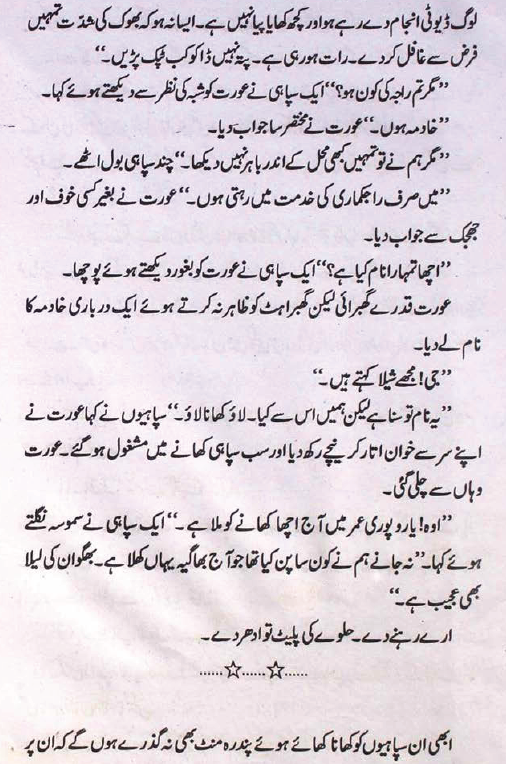 لوگ ڈیوٹی انجام دے رہے ہو اور کچھ کھایا پیا نہیں ہے۔ ایسا نہ ہو کہ بھوک کی شدّت تمہیں
فرض سے غافل کر دے۔ رات ہو رہی ہے۔ پتہ نہیں ڈاکو کب ٹپک پڑیں۔‘‘
’’مگر تم راجہ کی کون ہو؟‘‘ ایک سپاہی نے عورت کو شبہ کی نظر سے دیکھتے ہوئے کہا۔
’’خادمہ ہوں۔‘‘ عورت نے مختصر سا جواب دیا۔
’’مگر ہم نے تو تمہیں کبھی محل کے اندر باہر نہیں دیکھا۔‘‘ چند سپاہی بول اٹھے۔
’’میں صرف راجکماری کی خدمت میں رہتی ہوں۔‘‘ عورت نے بغیر کسی خوف اور
جھجک سے جواب دیا۔
’’اچھا تمہارا نام کیا ہے؟‘‘ ایک سپاہی نے عورت کو بغور دیکھتے ہوئے پوچھا۔
عورت قدرے گھبرائی لیکن گھبراہٹ کو ظاہر نہ کرتے ہوئے ایک درباری خادمہ کا
نام لے دیا۔
’’جی! مجھے شیلا کہتے ہیں۔‘‘
’’یہ نام تو سنا ہے لیکن ہمیں اس سے کیا۔ لاؤ کھانا لاؤ۔‘‘ سپاہیوں نے کہا عورت نے
اپنے سر سے خوان اتار کر نیچے رکھ دیا اور سب سپاہی کھانے میں مشغول ہو گئے۔ عورت
وہاں سے چلی گئی۔
’’اوہ! یارو پوری عمر میں آج اچھا کھانے کو ملا ہے۔‘‘ ایک سپاہی نے سموسہ نگلتے
ہوئے کہا۔ ’’نہ جانے ہم نے کون سا پن کیا تھا جو آج بھاگیہ یہاں کھلا ہے۔ بھگوان کی لیلا
بھی عجیب ہے۔‘‘
ارے رہنے دے۔ حلوے کی پلیٹ تو ادھر دے۔
......☆......☆......
ابھی ان سپاہیوں کو کھانا کھائے ہوئے پندرہ منٹ بھی نہ گذرے ہوں گے کہ اُن پر